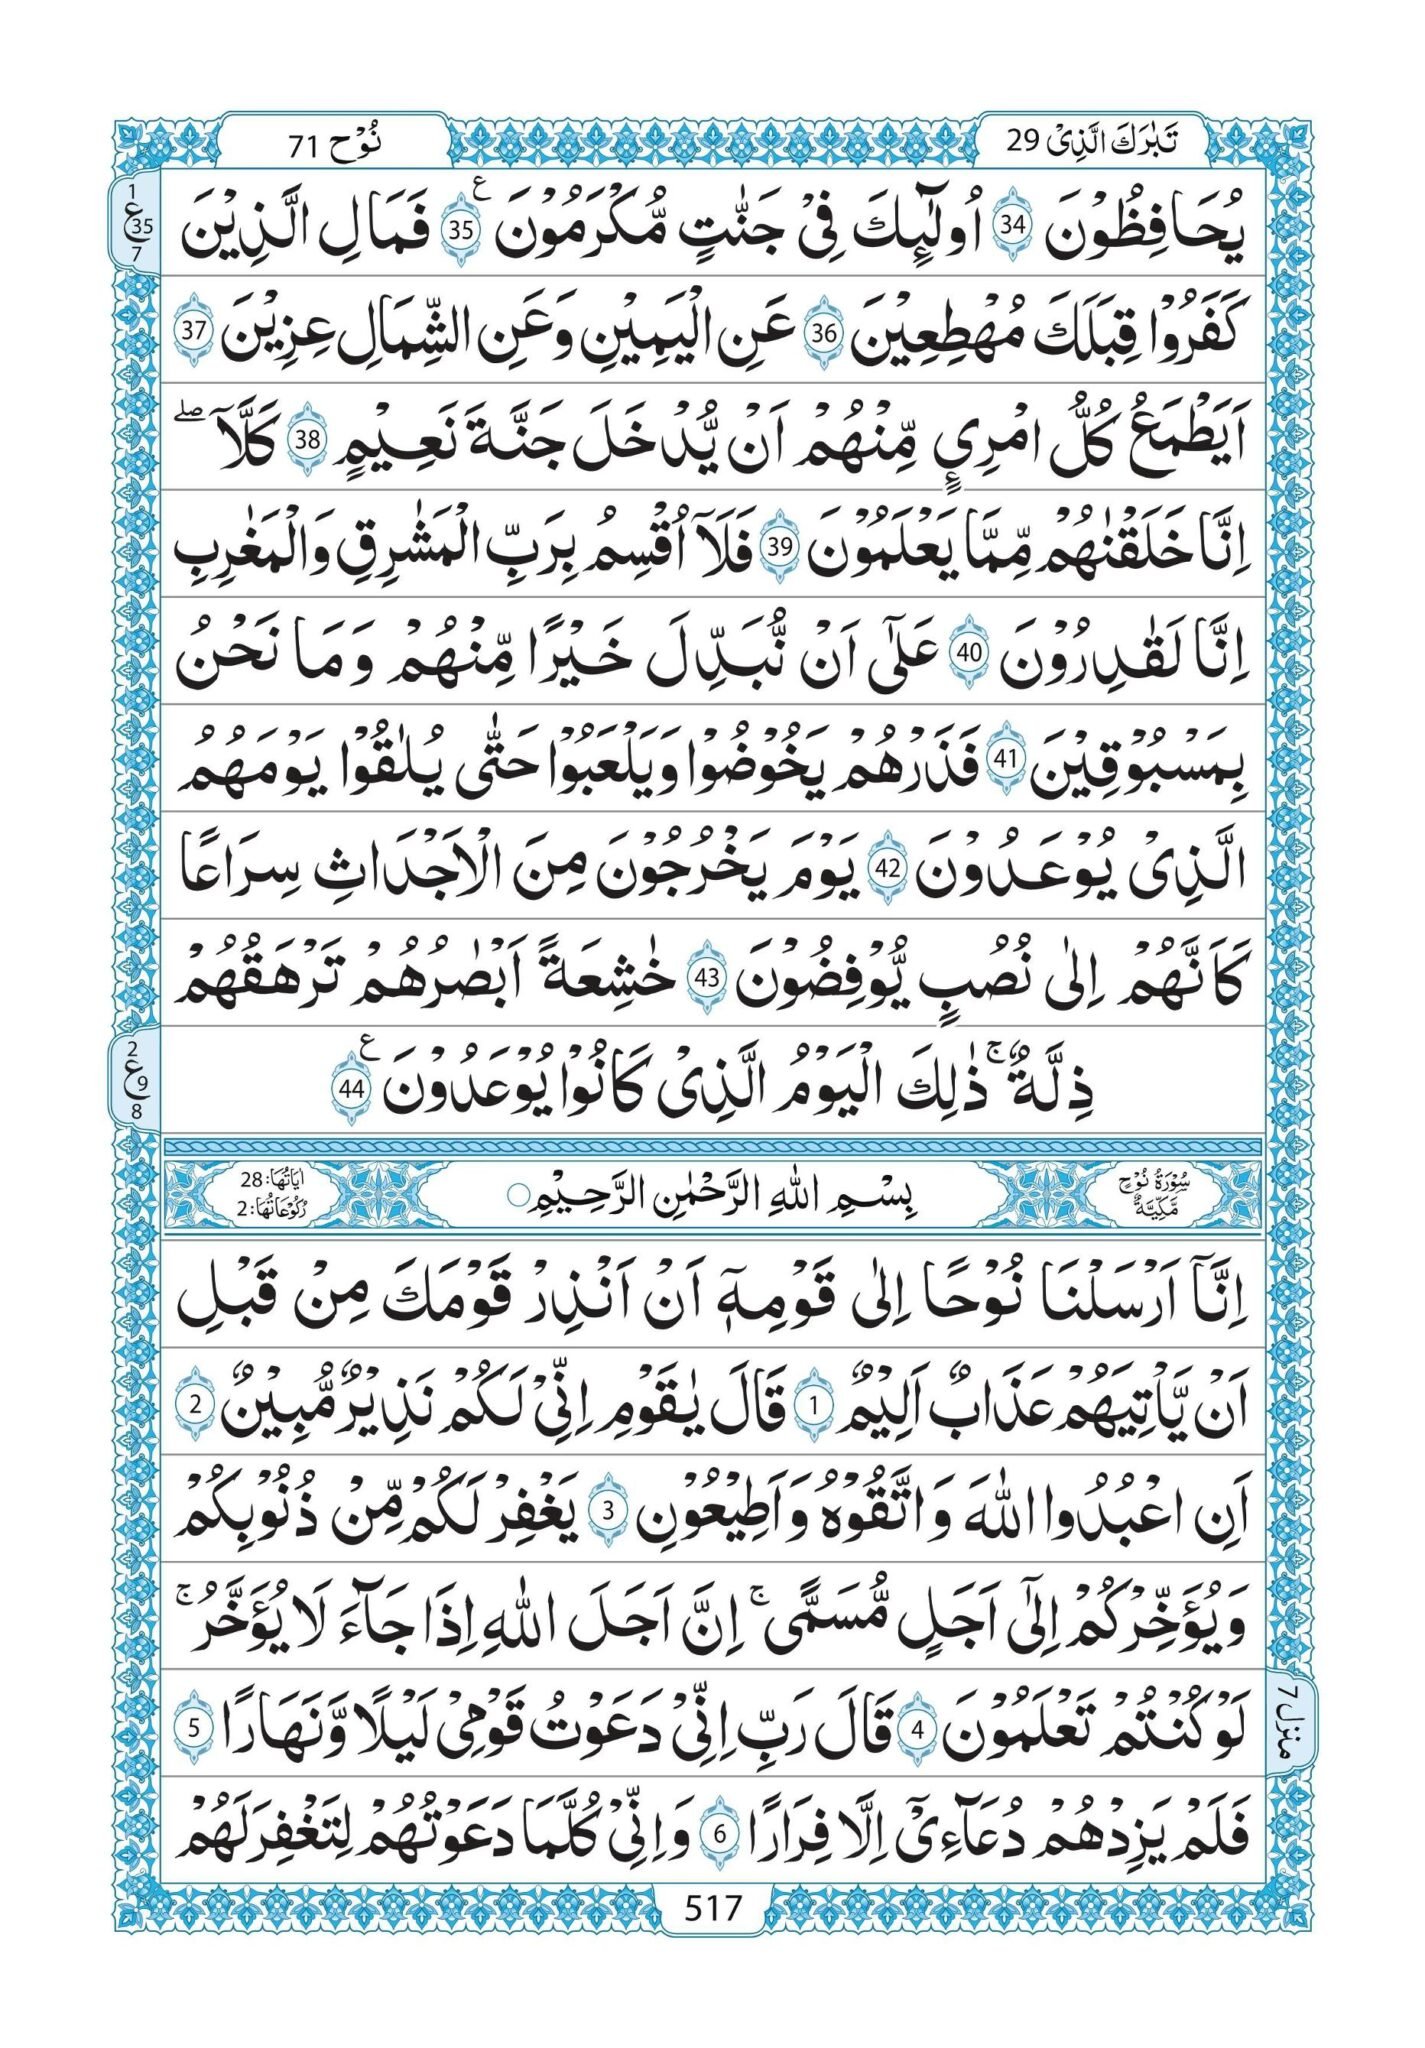 تَبٰرَكَ الَّذِىْ 29
نُوْح 71
1
ع
35
7
يُحَافِظُوْنَ 34 اُولٰٓئِكَ فِىْ جَنّٰتٍ مُّكْرَمُوْنَ ع 35 فَمَالِ الَّذِيْنَ
كَفَرُوْا قِبَلَكَ مُهْطِعِيْنَ 36 عَنِ الْيَمِيْنِ وَعَنِ الشِّمَالِ عِزِيْنَ 37
اَيَطْمَعُ كُلُّ امْرِىٍٕ مِّنْهُمْ اَنْ يُّدْخَلَ جَنَّةَ نَعِيْمٍ 38 كَلَّآ ۖ
اِنَّا خَلَقْنٰهُمْ مِّمَّا يَعْلَمُوْنَ 39 فَلَآ اُقْسِمُ بِرَبِّ الْمَشٰرِقِ وَالْمَغٰرِبِ
اِنَّا لَقٰدِرُوْنَ 40 عَلٰٓى اَنْ نُّبَدِّلَ خَيْرًا مِّنْهُمْ وَمَا نَحْنُ
بِمَسْبُوْقِيْنَ 41 فَذَرْهُمْ يَخُوْضُوْا وَيَلْعَبُوْا حَتّٰى يُلٰقُوْا يَوْمَهُمُ
الَّذِىْ يُوْعَدُوْنَ 42 يَوْمَ يَخْرُجُوْنَ مِنَ الْاَجْدَاثِ سِرَاعًا
كَاَنَّهُمْ اِلٰى نُصُبٍ يُّوْفِضُوْنَ 43 خٰشِعَةً اَبْصٰرُهُمْ تَرْهَقُهُمْ
ذِلَّةٌ ۚ ذٰلِكَ الْيَوْمُ الَّذِىْ كَانُوْا يُوْعَدُوْنَ ع 44
2
ع
9
8
سُوْرَةُ نُوْحٍ
مَّكِّيَّةٌ
بِسْمِ اللّٰهِ الرَّحْمٰنِ الرَّحِيْمِ ○
اٰيَاتُهَا: 28
رُكُوْعَاتُهَا: 2
اِنَّآ اَرْسَلْنَا نُوْحًا اِلٰى قَوْمِهٖٓ اَنْ اَنْذِرْ قَوْمَكَ مِنْ قَبْلِ
اَنْ يَّاْتِيَهُمْ عَذَابٌ اَلِيْمٌ 1 قَالَ يٰقَوْمِ اِنِّىْ لَكُمْ نَذِيْرٌ مُّبِيْنٌ 2
اَنِ اعْبُدُوا اللّٰهَ وَاتَّقُوْهُ وَاَطِيْعُوْنِ 3 يَغْفِرْ لَكُمْ مِّنْ ذُنُوْبِكُمْ
وَيُؤَخِّرْكُمْ اِلٰٓى اَجَلٍ مُّسَمًّى ۚ اِنَّ اَجَلَ اللّٰهِ اِذَا جَآءَ لَا يُؤَخَّرُ ۚ
لَوْ كُنْتُمْ تَعْلَمُوْنَ 4 قَالَ رَبِّ اِنِّىْ دَعَوْتُ قَوْمِىْ لَيْلًا وَّنَهَارًا 5
منزل 7
فَلَمْ يَزِدْهُمْ دُعَآءِىْٓ اِلَّا فِرَارًا 6 وَاِنِّىْ كُلَّمَا دَعَوْتُهُمْ لِتَغْفِرَ لَهُمْ
517